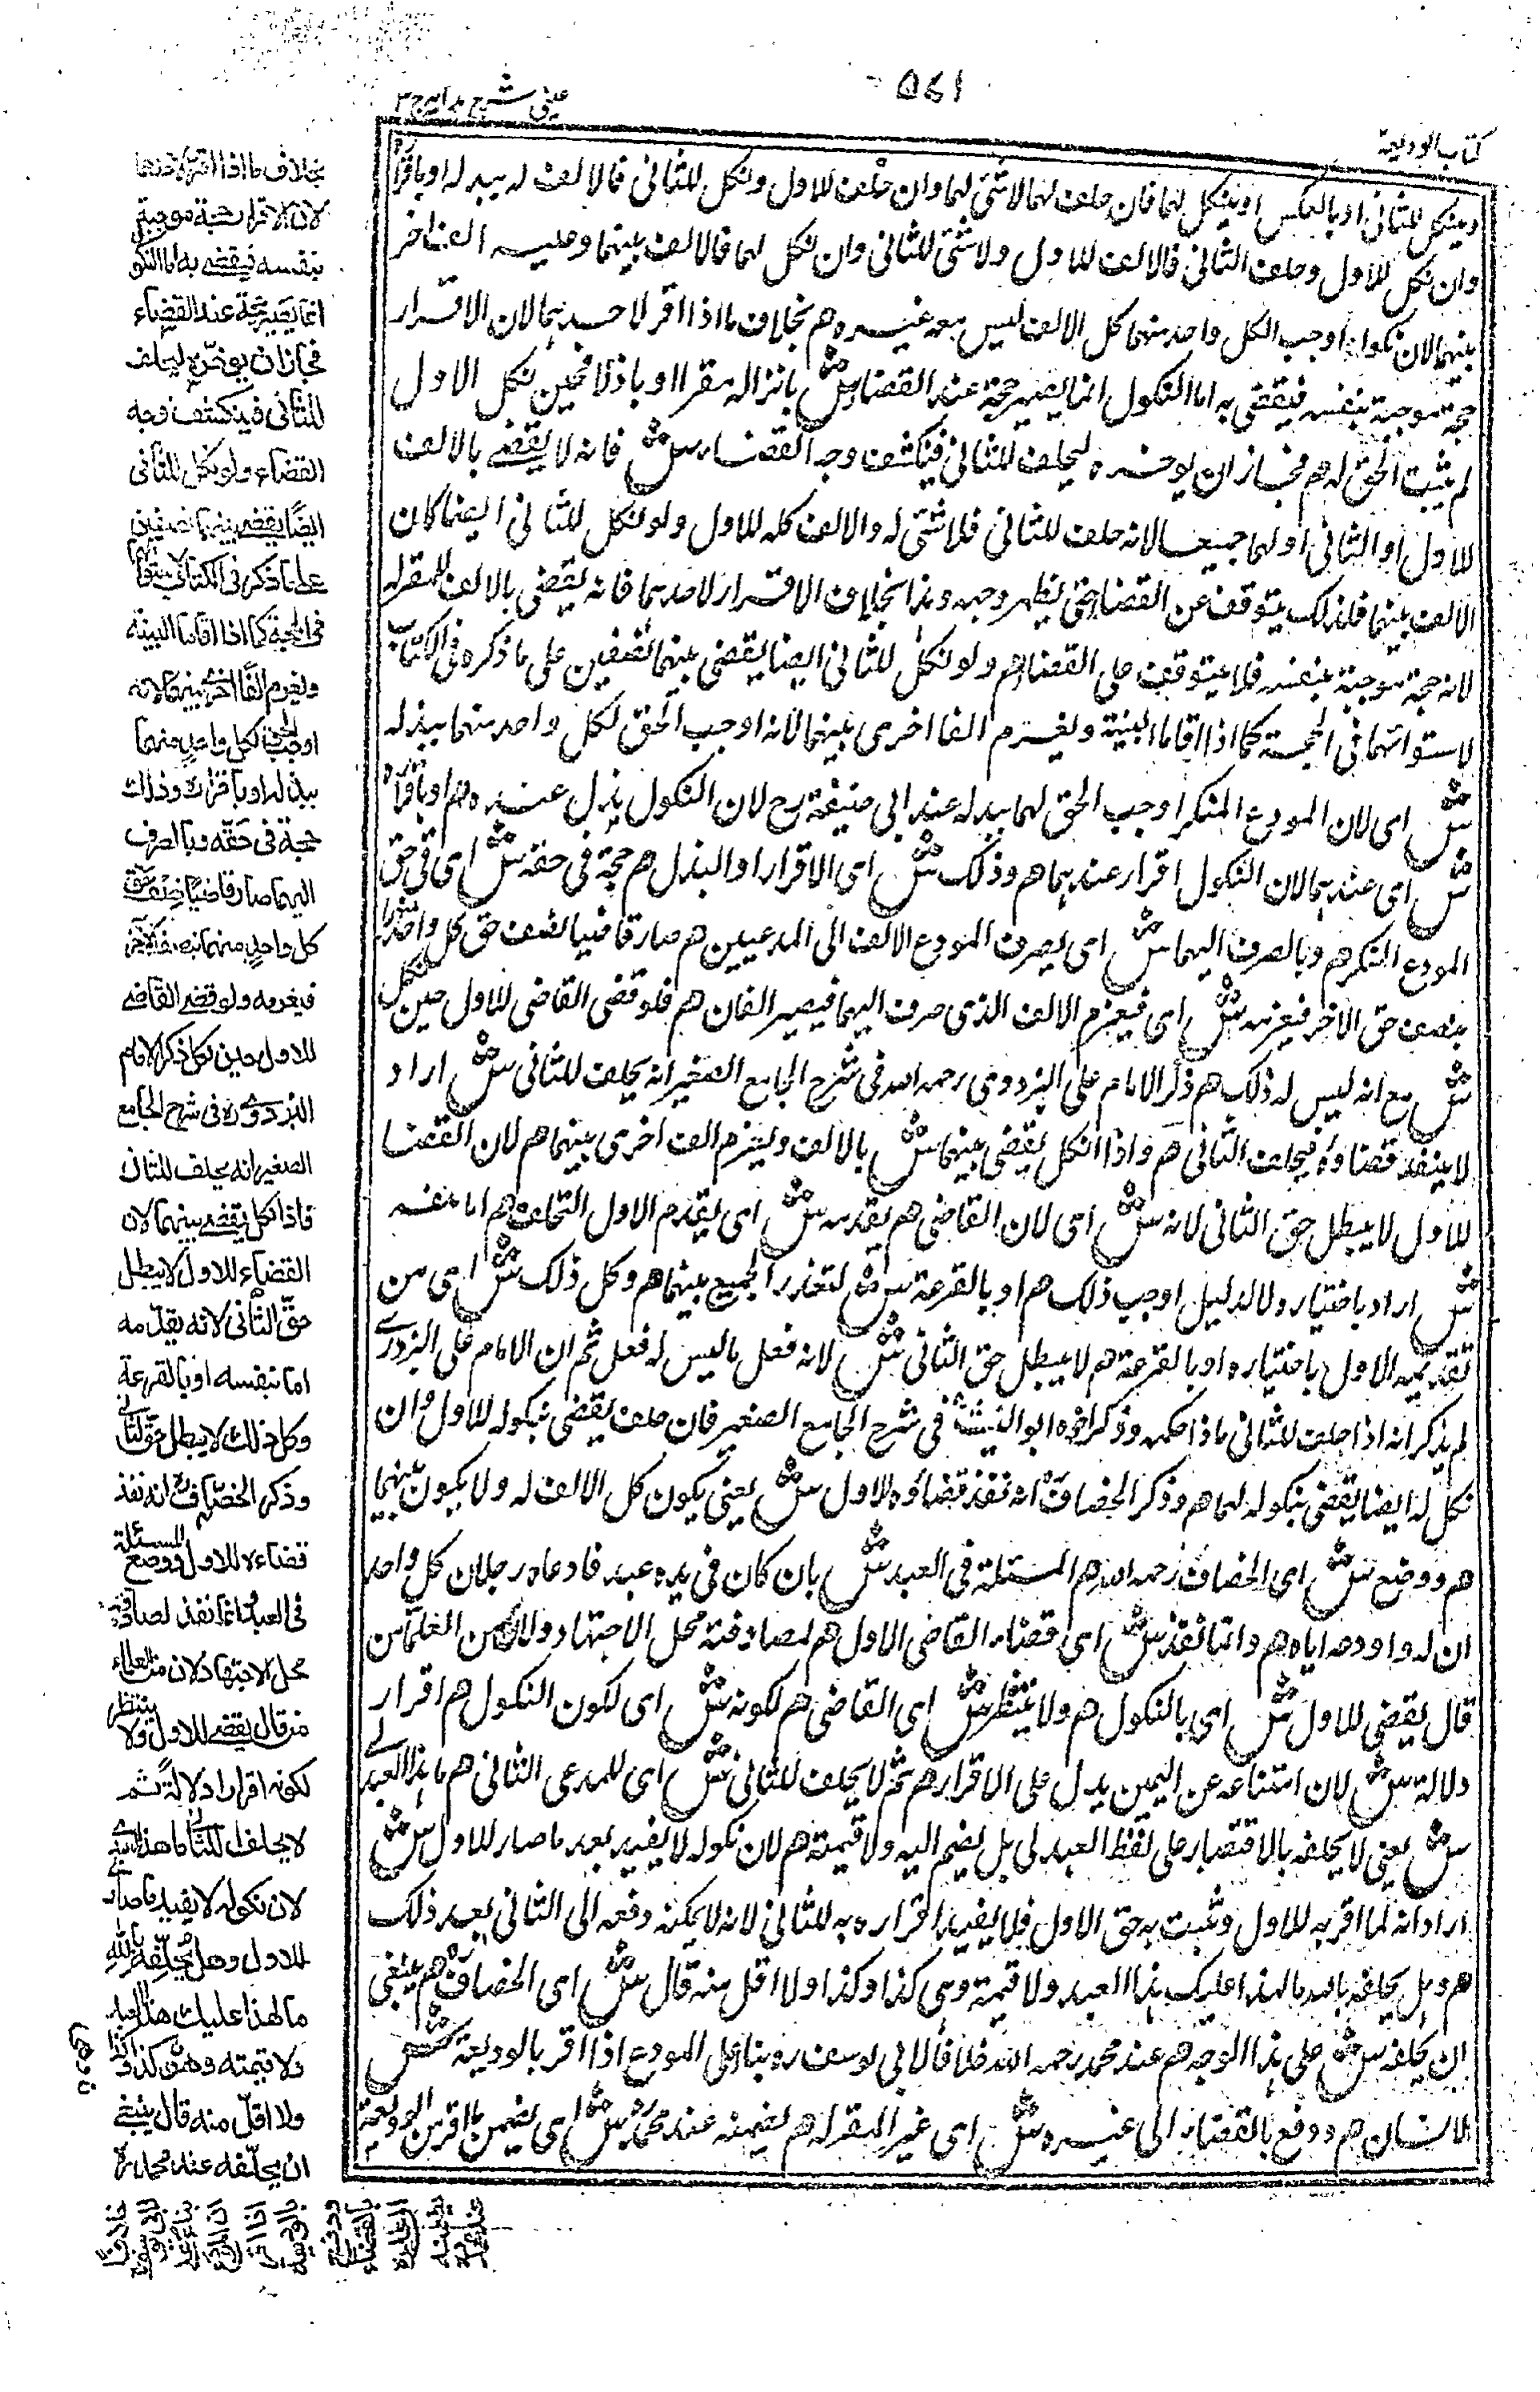 كتاب الوديعة
٥٦١
عيني شرح هداية ج ٣
وينكل للثاني او بالعكس او ينكل لهما فان حلف لهما لا شئ لهما وان حلف للاول ونكل للثاني فالالف له ببدله او باقراره
وان نكل للاول وحلف الثاني فالالف للاول ولا شئ للثاني وان نكل لهما فالالف بينهما وعليه الف اخر
بينهما لان نكوله اوجب لكل واحد منهما كل الالف ليس معه غيره هم بخلاف ما اذا اقر لاحدهما لان الاقرار
حجة موجبة بنفسه فيقضى به اما النكول انما يصير حجة عند القضاء ش بانزاله مقرا او باذلا فحين نكل الاول
لم يثبت الحق له هم فجاز ان يوخره ليحلف للثاني فينكشف وجه القضاء ش فانه لا يقضے بالالف
للاول او الثاني او لهما جميعا لانه حلف للثاني فلا شئ له والالف كله للاول ولو نكل للثاني ايضا كان
الالف بينهما فلذلك يتوقف عن القضاء حتى يظهر وجهه وهذا بخلاف الاقرار لاحدهما فانه يقضى بالالف للمقر له
لانه حجة موجبة بنفسه فلا يتوقف على القضاء هم ولو نكل للثاني ايضا يقضى بينهما نصفين على ما ذكره في الكتاب
لاستوائهما في الحجة كما اذا اقاما البينة ويغرم الفا اخرى بينهما لانه اوجب الحق لكل واحد منهما ببذله
ش اى لان المودع المنكر اوجب الحق لهما ببدله عند ابي حنيفة رح لان النكول بذل عنده هم او باقراره
ش اى عندهما لان النكول اقرار عندهما هم وذلك ش اى الاقرار او البذل هم حجة في حقه ش اى في حق
المودع المنكر هم وبالصرف اليهما ش اى بصرف المودع الالف الى المدعيين هم صار قاضيا نصف حق كل واحد
بنصف حق الاخر فيغرمه ش اى فيغرم الالف الذى صرف اليهما فيصير الفان هم فلو قضى القاضى للاول حين نكل
ش مع انه ليس له ذلك هم ذكر الامام على البزدوى رحمه الله في شرح الجامع الصغير انه يحلف للثاني ش اراد
لا ينفذ قضاؤه فيحلف الثاني هم واذا نكل يقضى بينهما ش بالالف ويغرم الف اخرى بينهما هم لان القضا
للاول لا يبطل حق الثاني لانه ش اى لان القاضى هم يقدمه ش اى يقدم الاول التحلف هم اما بنفسه
ش اراد باختياره ولا لدليل اوجب ذلك هم او بالقرعة ش لتعذر الجمع بينهما هم وكل ذلك ش اى من
تقديمه الاول باختياره او بالقرعة هم لا يبطل حق الثاني ش لانه فعل ما ليس له فعل ثم ان الامام على البزدوى
لم يذكر انه اذا حلف للثاني ماذا حكمه وذكر اخوه ابو اليسر في شرح الجامع الصغير فان حلف يقضى بنكوله للاول وان
نكل له ايضا يقضى بنكوله لهما هم وذكر الخصاف انه نفذ قضاؤه للاول ش يعنى يكون كل الالف له ولا يكون بينهما
هم ووضع ش اى الخصاف رحمه الله هم المسئلة في العبد ش بان كان في يده عبد فادعاه رجلان كل واحد
ان له واودعه اياه هم وانما نفذ ش اى قضاء القاضى الاول هم لمصادفته محل الاجتهاد ولان من العلماء من
قال يقضى للاول ش اى بالنكول هم ولا ينتظر ش اى القاضى هم لكونه ش اى لكون النكول هم اقرار
دلالة ش لان امتناعه عن اليمين يدل على الاقرار هم ثم لا يحلف للثاني ش اى للمدعى الثاني هم ما هذا العبد لے
ش يعنى لا يحلفه بالاقتصار على لفظ العبد لى بل يضم اليه ولا قيمته هم لان نكوله لا يفيد بعد ما صار للاول ش
اراد انه لما اقر به للاول وثبت به حق الاول فلا يفيد اقراره به للثاني لانه لا يمكنه دفعه الى الثاني بعد ذلك
هم وهل يحلفه بالله ما لهذا عليك هذا العبد ولا قيمته وهى كذا وكذا ولا اقل منه قال ش اى الخصاف هم ينبغى
ان يحلفه ش على هذا الوجه هم عند محمد رحمه الله خلافا لابي يوسف ره بناء على المودع اذا اقر بالوديعة ش
لانسان هم ودفع بالقضاء الى غيره ش اى غير المقر له هم يضمنه عند محمد ره ش اى يضمن ما اقر من الوديعة
بخلاف ما اذا اقر لاحدهما
لان الاقرار حجة موجبة
بنفسه فيقضے به اما النكو
انما يصير حجة عند القضاء
فجاز ان يوخره ليحلف
للثانى فينكشف وجه
القضاء ولو نكل للثانى
ايضا يقضے بينهما نصفين
على ما ذكر فى الكتاب لاستوائهما
فى الحجة كما اذا اقاما البينة
ويغرم الفا اخرى بينهما لانه
اوجب الحق لكل واحد منهما
ببذله او باقراره وذلك
حجة فى حقه وبالصرف
اليهما صار قاضيا نصف حق
كل واحد منهما بنصف حق الآخر
فيغرمه ولو قضے القاضے
للاول حين نكل ذكر الامام
البزدوى ره فى شرح الجامع
الصغير انه يحلف للثان
فاذا نكل يقضے بينهما لان
القضاء للاول لا يبطل
حق الثانى لانه يقدمه
اما بنفسه او بالقرعة
وكل ذلك لا يبطل حق الثانى
وذكر الخصاف ره انه نفذ
قضاءه للاول ووضع المسئلة
فى العبد وانما نفذ لمصادفته
محل الاجتهاد لان من العلماء
من قال يقضے للاول ولا ينتظر
لكونه اقرارا دلالة ثم
لا يحلف للثانى ما هذا العبد لے
لان نكوله لا يفيد ما صار
للاول وهل يحلفه بالله
ما لهذا عليك هذا العبد
ولا قيمته وهى كذا وكذا
ولا اقل منه قال ينبغے
ان يحلفه عند محمد ره